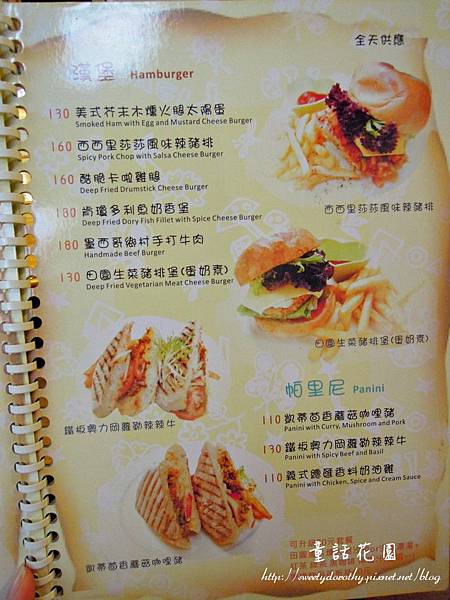 全天供應
漢堡 Hamburger
130 美式芥末木燻火腿太陽蛋
Smoked Ham with Egg and Mustard Cheese Burger
160 西西里莎莎風味辣豬排
Spicy Pork Chop with Salsa Cheese Burger
160 酷脆卡啦雞腿
Deep Fried Drumstick Cheese Burger
180 肯瓊多利魚奶香堡
Deep Fried Dory Fish Fillet with Spice Cheese Burger
180 墨西哥鄉村手打牛肉
Handmade Beef Burger
130 田園生菜豬排堡(蛋奶素)
Deep Fried Vegetarian Meat Cheese Burger
西西里莎莎風味辣豬排
田園生菜豬排堡(蛋奶素)
鐵板興力岡蘿勒辣辣牛
帕里尼 Panini
110 凱蒂茴香蘑菇咖哩豬
Panini with Curry, Mushroom and Pork
130 鐵板興力岡蘿勒辣辣牛
Panini with Spicy Beef and Basil
110 義式臘腿香料奶油雞
Panini with Chicken, Spice and Cream Sauce
凱蒂茴香蘑菇咖哩豬
童話花園
http://sweetydorothy.pixnet.net/blog